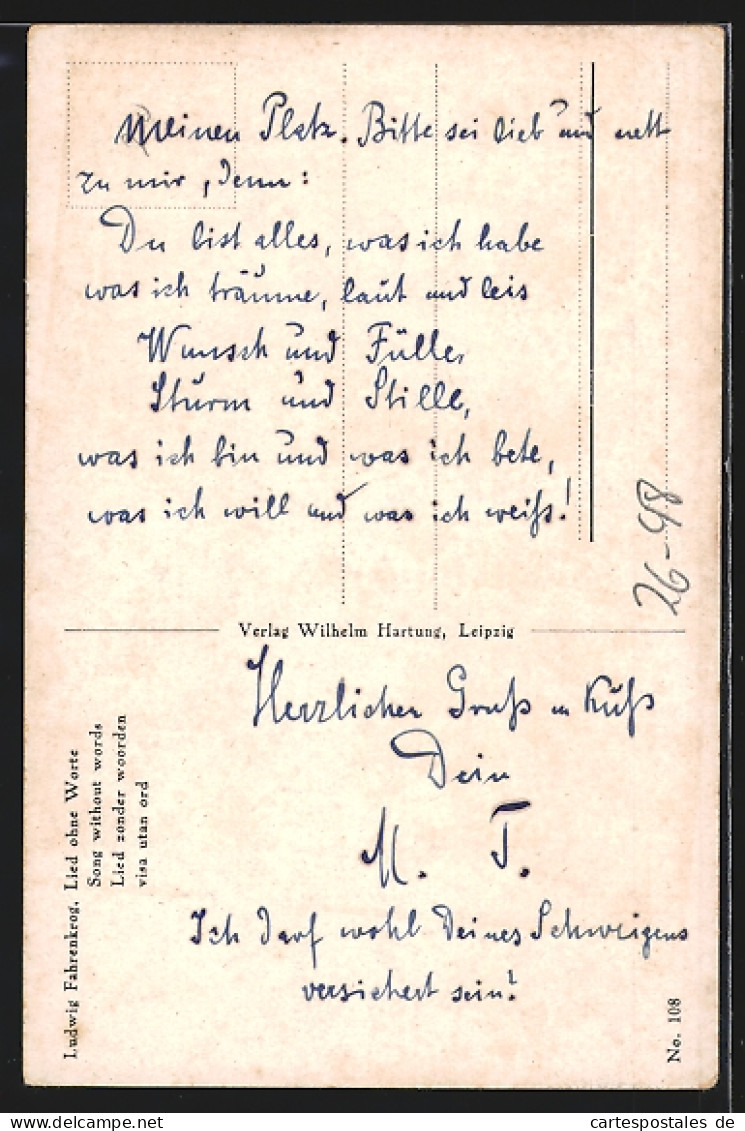 Meinen Platz. Bitte sei lieb und nett
zu mir, denn:
Du bist alles, was ich habe
was ich träume, laut und leis
Wunsch und Fülle,
Sturm und Stille,
was ich bin und was ich bete,
was ich will und was ich weiß!
26-98
Verlag Wilhelm Hartung, Leipzig
Herzlichen Gruß u Kuß
Dein
M. T.
Ich darf wohl Deines Schweigens
versichert sein?
Ludwig Fahrenkrog, Lied ohne Worte
Song without words
Lied zonder woorden
visa utan ord
No. 108
cartespostales de